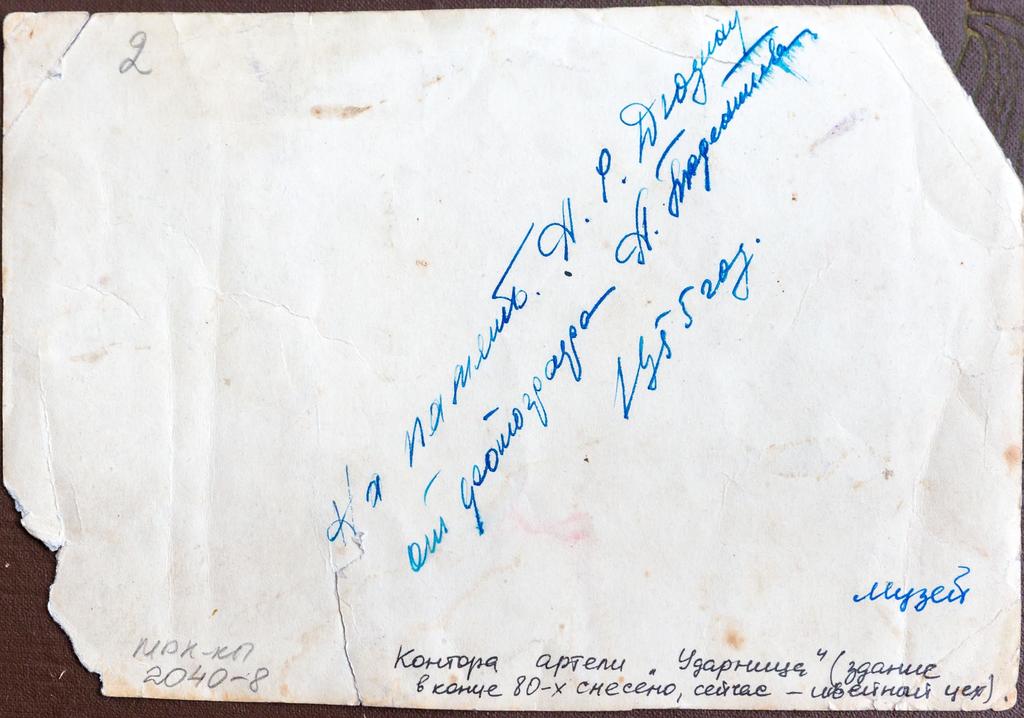 2
На память. Н. Ф.
от фотографа Н.
1955 год.
музей
МРК-КП
2040-8
Контора артели "Ударница" (здание
в конце 80-х снесено, сейчас - швейный цех).